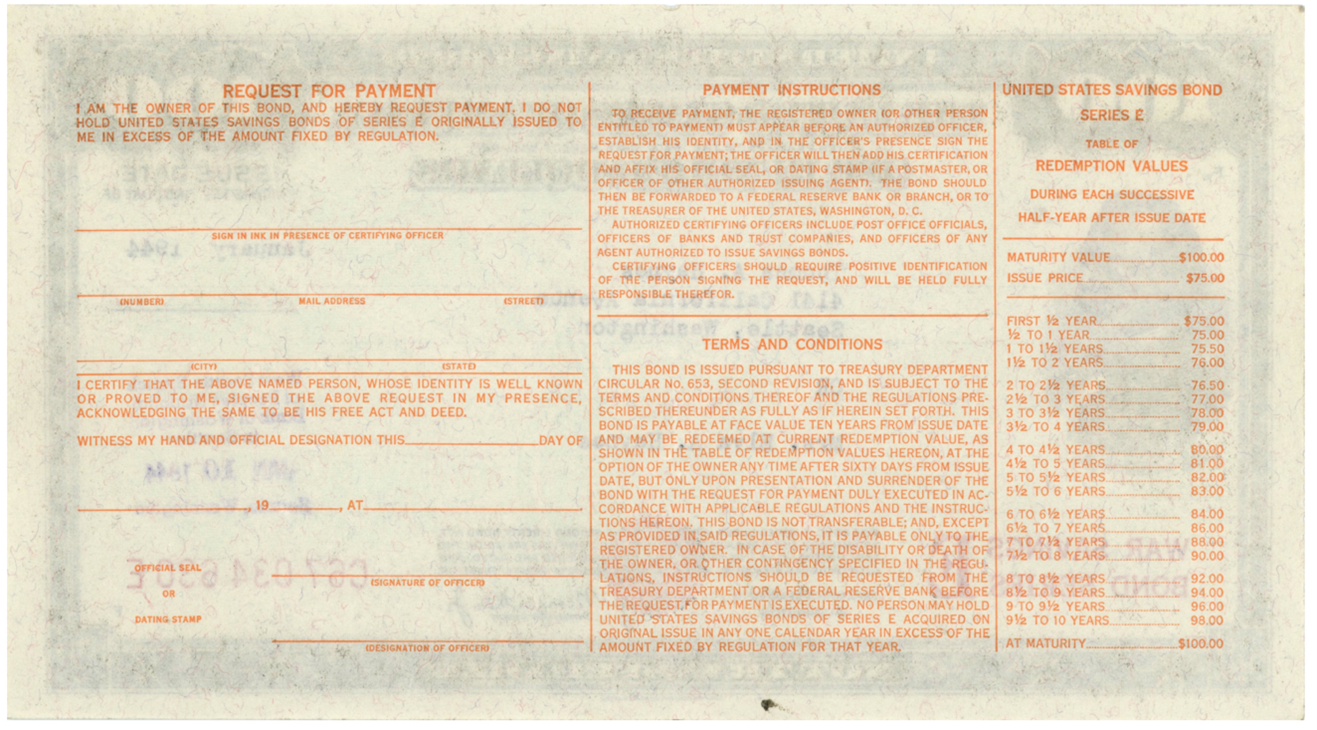 REQUEST FOR PAYMENT
I AM THE OWNER OF THIS BOND, AND HEREBY REQUEST PAYMENT. I DO NOT
HOLD UNITED STATES SAVINGS BONDS OF SERIES E ORIGINALLY ISSUED TO
ME IN EXCESS OF THE AMOUNT FIXED BY REGULATION.
SIGN IN INK IN PRESENCE OF CERTIFYING OFFICER
(NUMBER) MAIL ADDRESS (STREET)
(CITY) (STATE)
I CERTIFY THAT THE ABOVE NAMED PERSON, WHOSE IDENTITY IS WELL KNOWN
OR PROVED TO ME, SIGNED THE ABOVE REQUEST IN MY PRESENCE,
ACKNOWLEDGING THE SAME TO BE HIS FREE ACT AND DEED.
WITNESS MY HAND AND OFFICIAL DESIGNATION THIS DAY OF
, 19 , AT .
OFFICIAL SEAL
OR
DATING STAMP
(SIGNATURE OF OFFICER)
(DESIGNATION OF OFFICER)
PAYMENT INSTRUCTIONS
TO RECEIVE PAYMENT, THE REGISTERED OWNER (OR OTHER PERSON
ENTITLED TO PAYMENT) MUST APPEAR BEFORE AN AUTHORIZED OFFICER,
ESTABLISH HIS IDENTITY, AND IN THE OFFICER'S PRESENCE SIGN THE
REQUEST FOR PAYMENT; THE OFFICER WILL THEN ADD HIS CERTIFICATION
AND AFFIX HIS OFFICIAL SEAL, OR DATING STAMP (IF A POSTMASTER, OR
OFFICER OF OTHER AUTHORIZED ISSUING AGENT). THE BOND SHOULD
THEN BE FORWARDED TO A FEDERAL RESERVE BANK OR BRANCH, OR TO
THE TREASURER OF THE UNITED STATES, WASHINGTON, D. C.
AUTHORIZED CERTIFYING OFFICERS INCLUDE POST OFFICE OFFICIALS,
OFFICERS OF BANKS AND TRUST COMPANIES, AND OFFICERS OF ANY
AGENT AUTHORIZED TO ISSUE SAVINGS BONDS.
CERTIFYING OFFICERS SHOULD REQUIRE POSITIVE IDENTIFICATION
OF THE PERSON SIGNING THE REQUEST, AND WILL BE HELD FULLY
RESPONSIBLE THEREFOR.
TERMS AND CONDITIONS
THIS BOND IS ISSUED PURSUANT TO TREASURY DEPARTMENT
CIRCULAR No. 653, SECOND REVISION, AND IS SUBJECT TO THE
TERMS AND CONDITIONS THEREOF AND THE REGULATIONS PRE-
SCRIBED THEREUNDER AS FULLY AS IF HEREIN SET FORTH. THIS
BOND IS PAYABLE AT FACE VALUE TEN YEARS FROM ISSUE DATE
AND MAY BE REDEEMED AT CURRENT REDEMPTION VALUE, AS
SHOWN IN THE TABLE OF REDEMPTION VALUES HEREON, AT THE
OPTION OF THE OWNER ANY TIME AFTER SIXTY DAYS FROM ISSUE
DATE, BUT ONLY UPON PRESENTATION AND SURRENDER OF THE
BOND WITH THE REQUEST FOR PAYMENT DULY EXECUTED IN AC-
CORDANCE WITH APPLICABLE REGULATIONS AND THE INSTRUC-
TIONS HEREON. THIS BOND IS NOT TRANSFERABLE; AND, EXCEPT
AS PROVIDED IN SAID REGULATIONS, IT IS PAYABLE ONLY TO THE
REGISTERED OWNER. IN CASE OF THE DISABILITY OR DEATH OF
THE OWNER, OR OTHER CONTINGENCY SPECIFIED IN THE REGU-
LATIONS, INSTRUCTIONS SHOULD BE REQUESTED FROM THE
TREASURY DEPARTMENT OR A FEDERAL RESERVE BANK BEFORE
THE REQUEST FOR PAYMENT IS EXECUTED. NO PERSON MAY HOLD
UNITED STATES SAVINGS BONDS OF SERIES E ACQUIRED ON
ORIGINAL ISSUE IN ANY ONE CALENDAR YEAR IN EXCESS OF THE
AMOUNT FIXED BY REGULATION FOR THAT YEAR.
UNITED STATES SAVINGS BOND
SERIES E
TABLE OF
REDEMPTION VALUES
DURING EACH SUCCESSIVE
HALF-YEAR AFTER ISSUE DATE
MATURITY VALUE $100.00
ISSUE PRICE $75.00
FIRST ½ YEAR $75.00
½ TO 1 YEAR 75.00
1 TO 1½ YEARS 75.50
1½ TO 2 YEARS 76.00
2 TO 2½ YEARS 76.50
2½ TO 3 YEARS 77.00
3 TO 3½ YEARS 78.00
3½ TO 4 YEARS 79.00
4 TO 4½ YEARS 80.00
4½ TO 5 YEARS 81.00
5 TO 5½ YEARS 82.00
5½ TO 6 YEARS 83.00
6 TO 6½ YEARS 84.00
6½ TO 7 YEARS 86.00
7 TO 7½ YEARS 88.00
7½ TO 8 YEARS 90.00
8 TO 8½ YEARS 92.00
8½ TO 9 YEARS 94.00
9 TO 9½ YEARS 96.00
9½ TO 10 YEARS 98.00
AT MATURITY $100.00